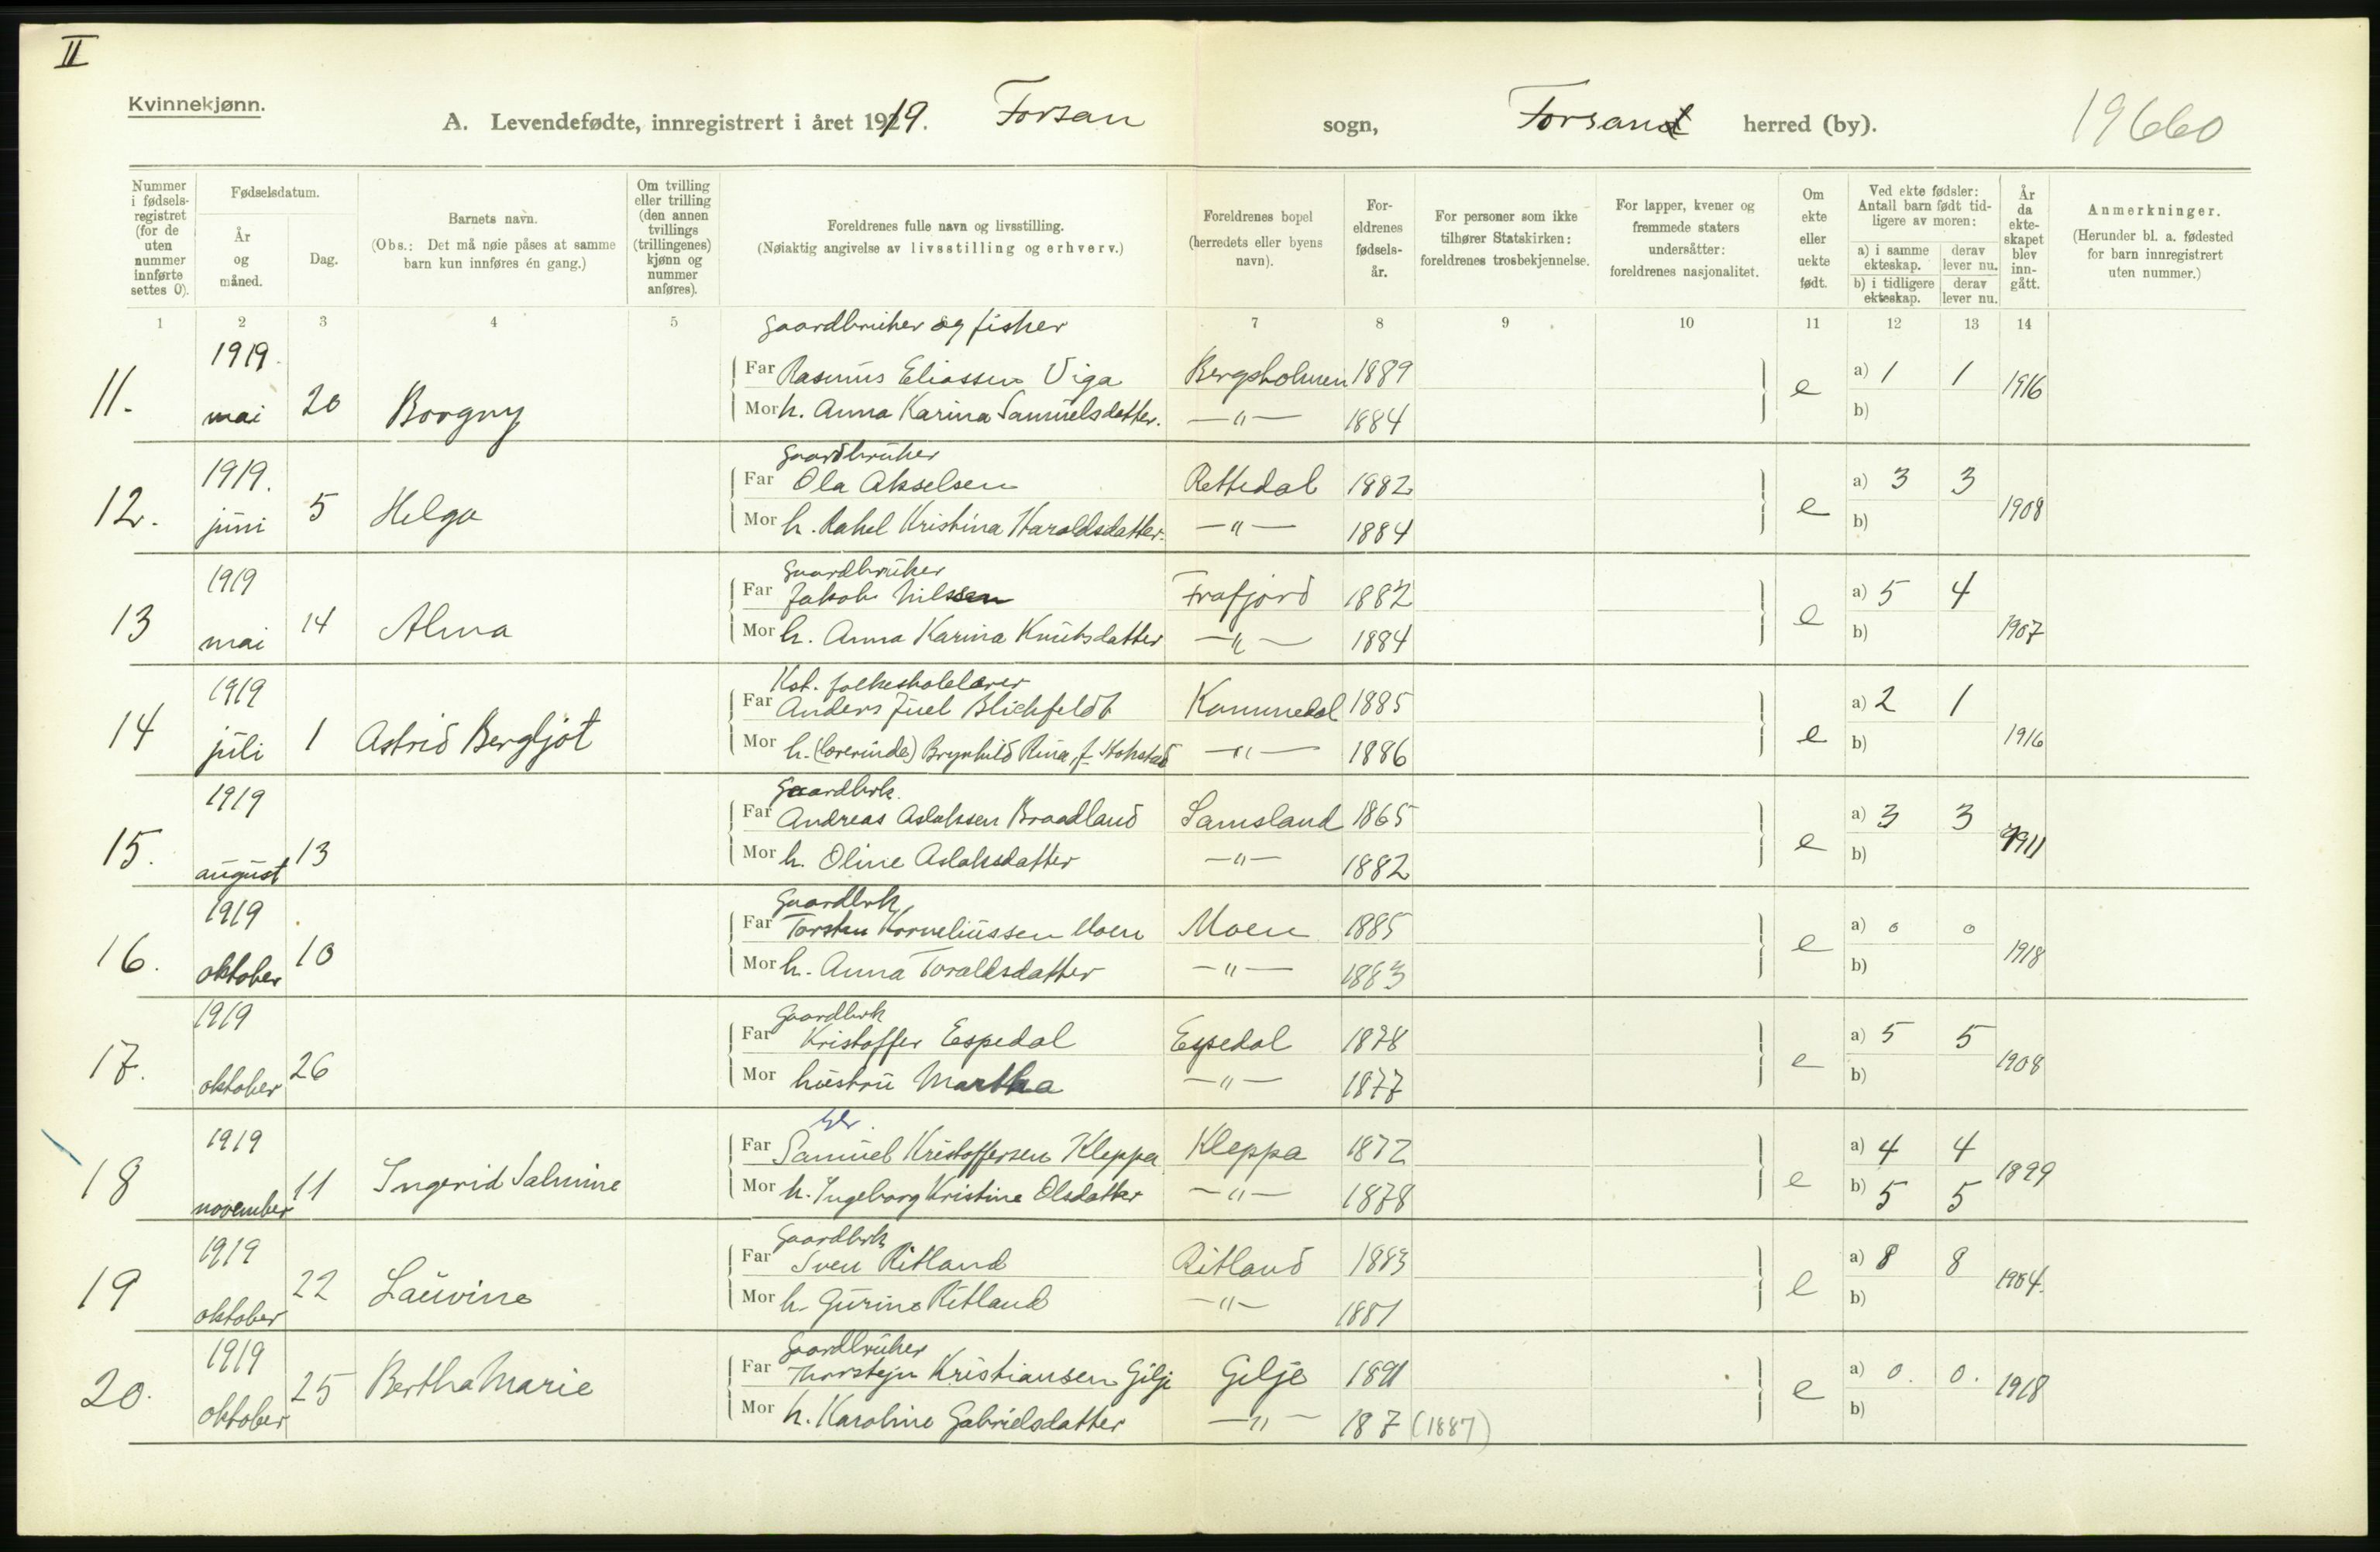 II
Kvinnekjønn.
A. Levendefødte, innregistrert i året 1919. Forsan sogn, Forsand herred (by). 19660
Nummer i fødselsregistret (for de uten nummer innførte settes 0).
Fødselsdatum.
År og måned.
Dag.
Barnets navn.
(Obs.: Det må nøie påses at samme barn kun innføres én gang.)
Om tvilling eller trilling (den annen tvillings (trillingenes) kjønn og nummer anføres).
Foreldrenes fulle navn og livsstilling.
(Nøiaktig angivelse av livsstilling og erhverv.)
Foreldrenes bopel (herredets eller byens navn).
Foreldrenes fødselsår.
For personer som ikke tilhører Statskirken: foreldrenes trosbekjennelse.
For lapper, kvener og fremmede staters undersåtter: foreldrenes nasjonalitet.
Om ekte eller uekte født.
Ved ekte fødsler: Antall barn født tidligere av moren:
a) i samme ekteskap. derav lever nu.
b) i tidligere ekteskap. derav lever nu.
År da ekteskapet blev inngått.
Anmerkninger.
(Herunder bl. a. fødested for barn innregistrert uten nummer.)
1 2 3 4 5 7 8 9 10 11 12 13 14
gaardbruker og fisker
1919.
Far Rasmus Eliassen Viga Bergsholmen 1889 a) 1 1
11. mai 20 Borgny e 1916
Mor h. Anna Karina Samuelsdatter. —"— 1884 b)
gaardbruker
1919.
Far Ola Akselsen Rettedal 1882 a) 3 3
12. juni 5 Helga e 1908
Mor h. Rakel Kristina Haraldsdatter. —"— 1884 b)
gaardbruker
1919
Far Jakob Nilssen Frafjord 1882 a) 5 4
13 mai 14 Alma e 1907
Mor h. Anna Karina Knutsdatter —"— 1884 b)
Kat. folkeskolelærer
1919
Far Anders Juel Blichfeldt 1885 a) 2 1
14 juli 1 Astrid Bergljot e 1916
Mor h. (lærerinde) Brynhild Rina, f. —"— 1886 b)
Gaardbrk.
1919
Far Andreas Aslaksen Braadland Samsland 1865 a) 3 3
15. august 13 e 1911
Mor h. Oline Aslaksdatter —"— 1882 b)
Gaardbrk
1919
Far Torsten Korneliussen Moen Moen 1885 a) 0 0
16. oktober 10 e 1918
Mor h. Anna Toraldsdatter —"— 1883 b)
Gaardbrk
1919
Far Kristoffer Espedal Espedal 1878 a) 5 5
17. oktober 26 e 1908
Mor hustru Martha —"— 1877 b)
1919
Far Samuel Kristoffersen Kleppa Kleppa 1872 a) 4 4
18 november 11 Ingerid Salmine e 1899
Mor h. Ingeborg Kristine Olsdatter —"— 1878 b) 5 5
Gaardbrk
1919
Far Sven Ritland Ritland 1883 a) 8 8
19 oktober 22 Lauvine e 1904.
Mor h. Gurine Ritland —"— 1881 b)
Gaardbruker
1919
Far Thorstein Kristiansen Gilje Gilje 1891 a) 0. 0.
20. oktober 25 Bertha Marie e 1918
Mor h. Karoline Gabrielsdatter —"— 187 (1887) b)